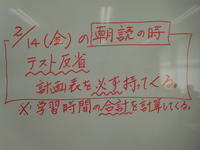 2/14(金)の朝読の時
テスト反省
計画表を必ず持ってくる。
※学習時間の合計を計算してくる。